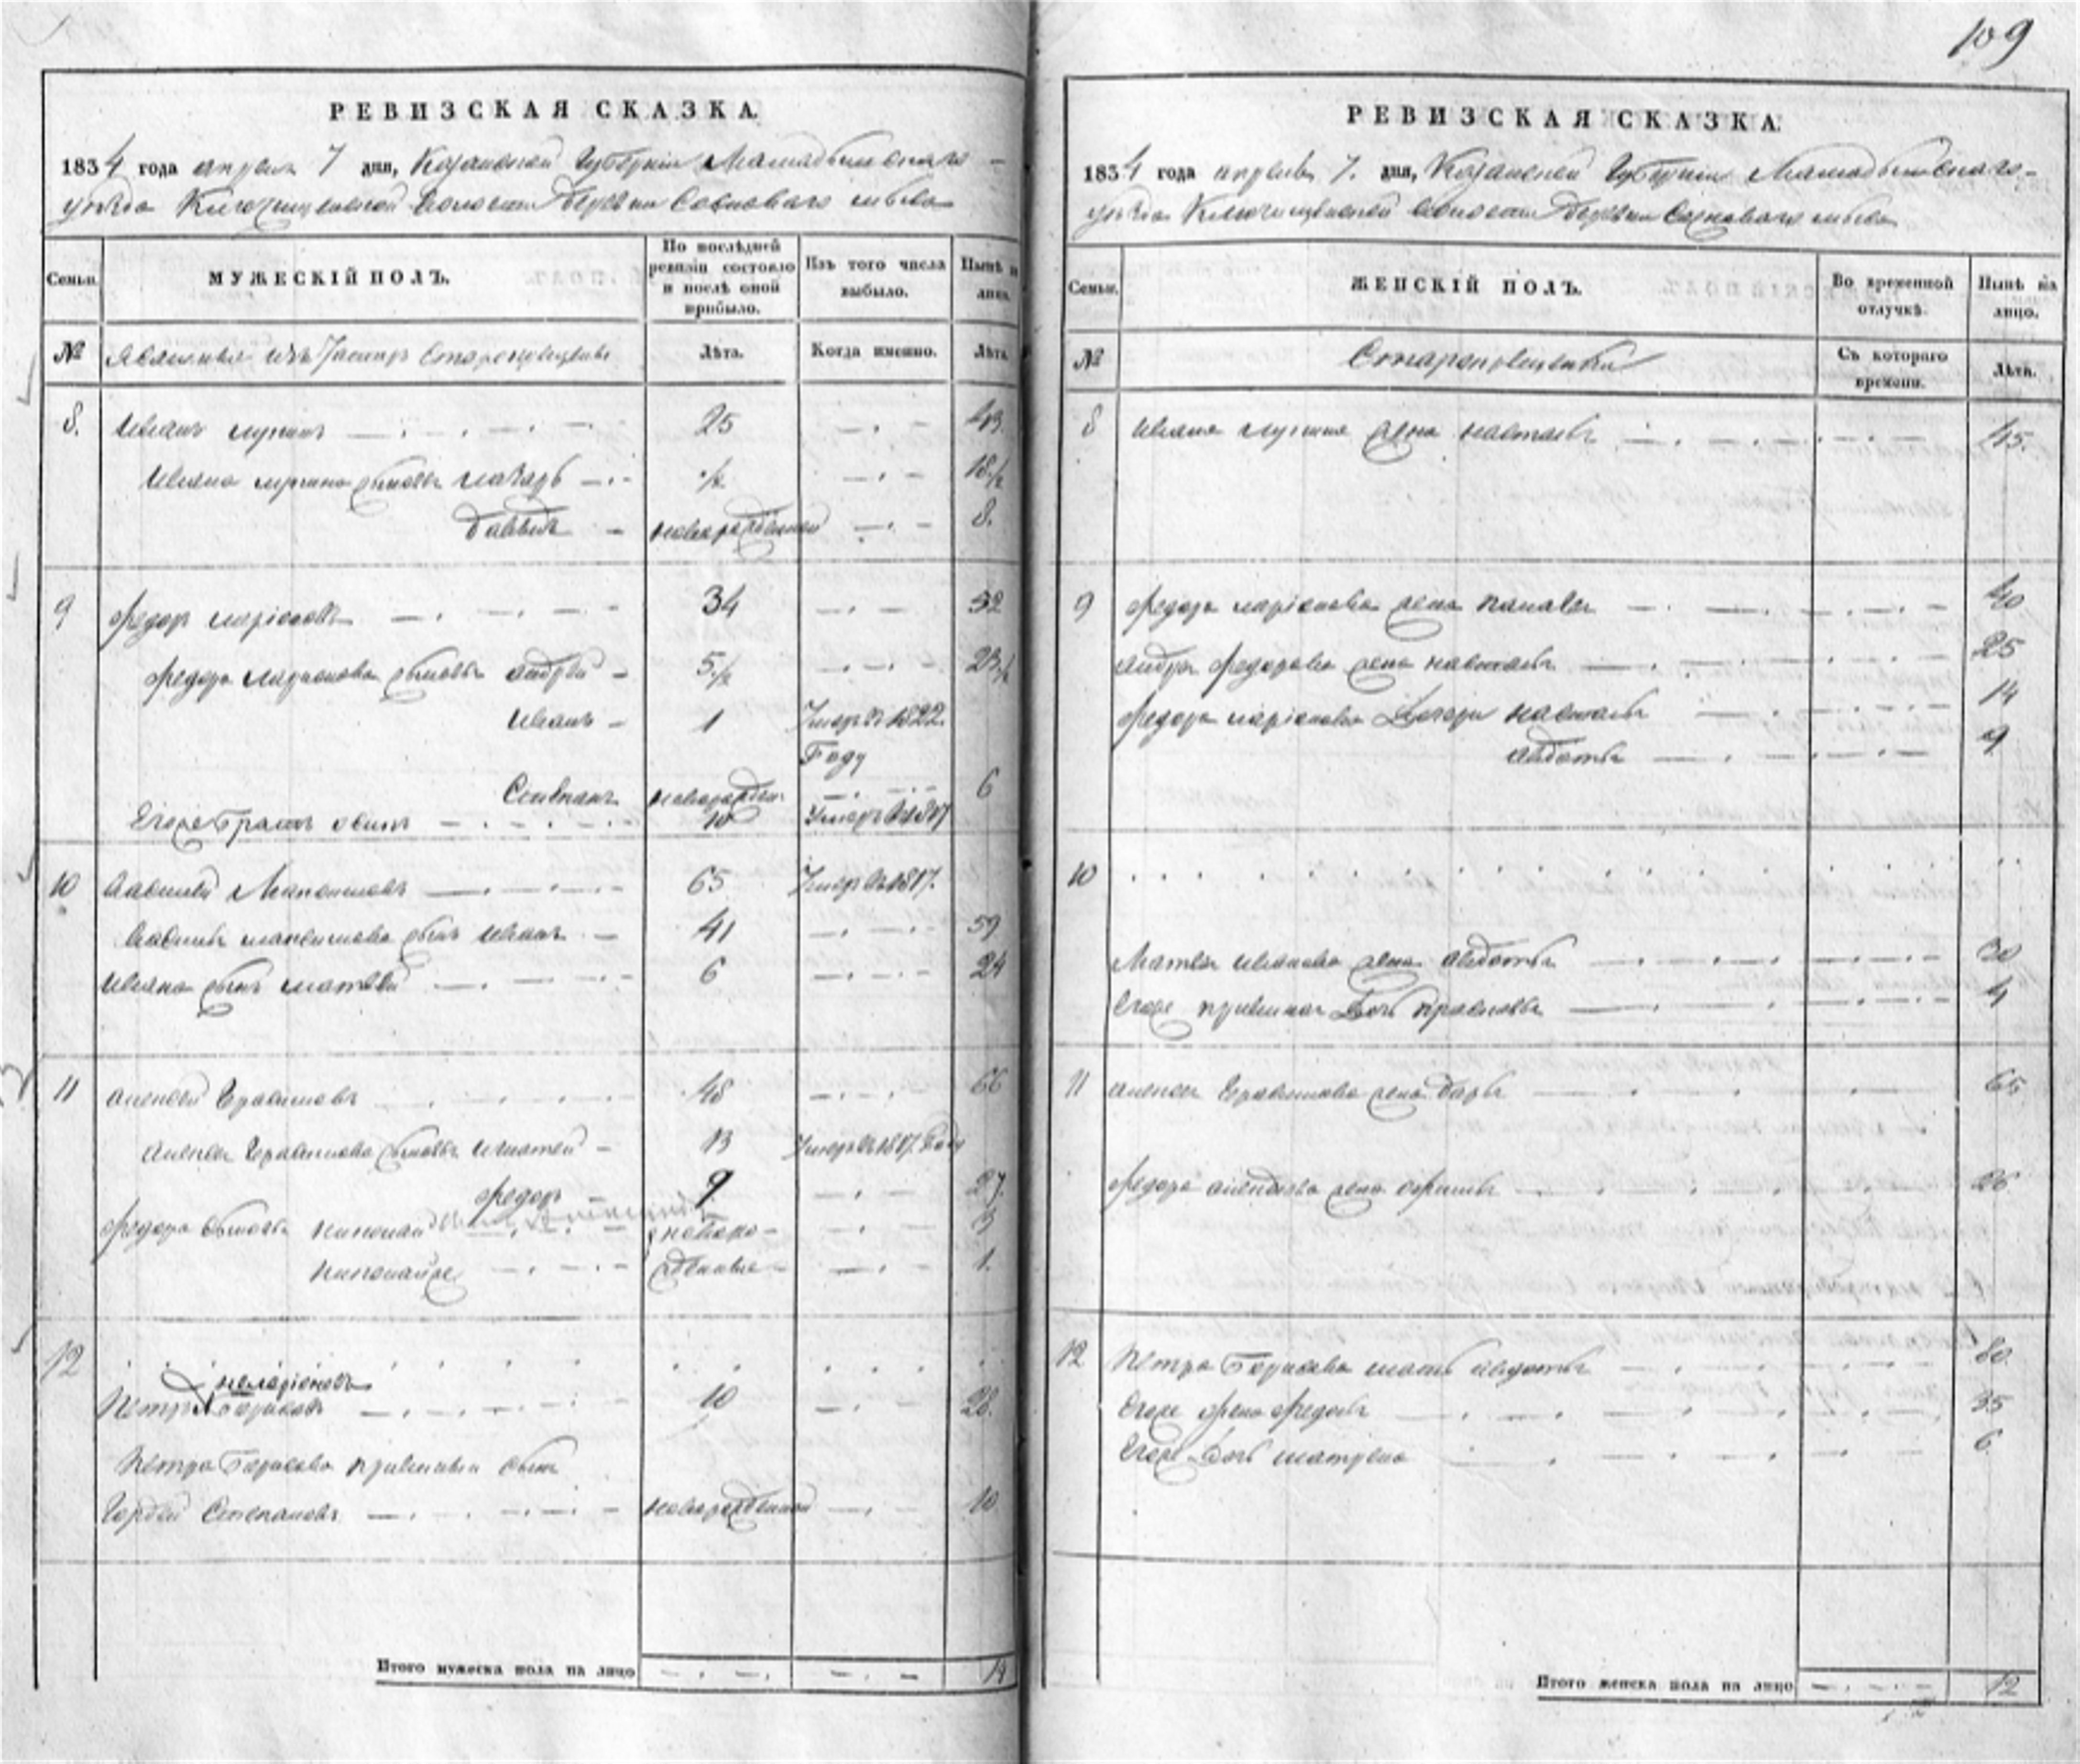 109
РЕВИЗСКАЯ СКАЗКА
1834 года апреля 7 дня, Казанской Губернии Мамадышскаго
уѣзда Ключищинской волости Деревни Сосноваго мыса
Семьи.
МУЖЕСКІЙ ПОЛЪ.
По послѣдней ревизіи состояло и послѣ оной прибыло.
Изъ того числа выбыло.
Нынѣ на лицо.
№
Ясашныя изъ Татаръ Старокрещены
Лѣта.
Когда именно.
Лѣта
8.
Иванъ 25 43
Ивана сыновья Назаръ ½ 18½
Давыдъ новорожденной 8.
9 Федоръ Ларіоновъ 34 52
Федора Ларионова сыновья Андрей 5½ 23½
Иванъ 1 Умеръ въ 1822
Году
Степанъ новорожден 6
Егоже братъ Осипъ 10 Умеръ въ 1817
10 Василей Максимовъ 65 Умеръ въ 1817.
Василья Максимова сынъ Иванъ 41 59
Ивана сынъ Матвей 6 24
11 Алексей Герасимовъ 48 66
Алексея Герасимова сыновья Игнатей 13 Умеръ въ 1817 Году
Федоръ 9 27.
Федора сыновья Николай новоро- 3
Николай же жденные 1.
12
Иларіоновъ
Петръ Борисовъ 10 28.
Петра Борисова приемыш сынъ
Гордей Степановъ новорожденной 10
Итого мужеска пола на лицо 14
РЕВИЗСКАЯ СКАЗКА
1834 года апреля 7. дня, Казанской Губернии Мамадышскаго
уѣзда Ключищинской волости Деревни Сосноваго мыса
Семьи.
ЖЕНСКІЙ ПОЛЪ.
Во временной отлучкѣ.
Нынѣ на лицо.
№
Старокрещены
Съ котораго времени.
Лѣта.
8 Ивана жена Настасья 45.
9 Федора Ларіонова жена 40
Андрея Федорова жена Настасья 25
Федора Ларіонова Дочери Настасья 14
Авдотья 9
10
Матвея Иванова жена Авдотья 30
Егоже приемная Дочь Прасковья 4
11 Алексея Герасимова жена Дарья 65
Федора Алексеева жена Офимья 26
12 Петра Борисова мать Авдотья 60
Егоже жена Федосья 35
Егоже Дочь Матрена 6
Итого женска пола на лицо 12